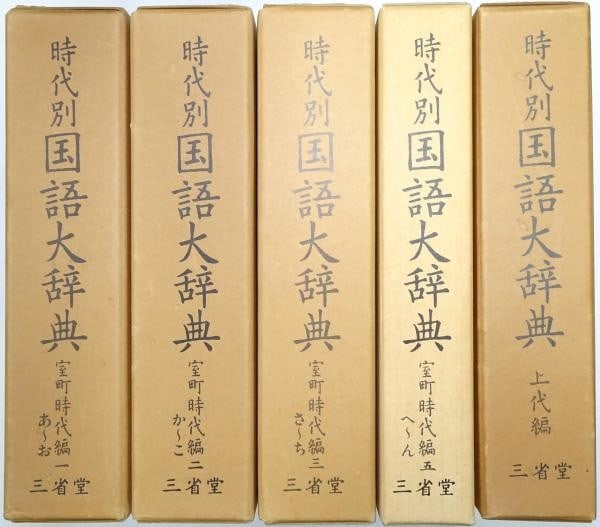 時代別国語大辞典
室町時代編一
あ〜お
三省堂
時代別国語大辞典
室町時代編二
か〜こ
三省堂
時代別国語大辞典
室町時代編三
さ〜ち
三省堂
時代別国語大辞典
室町時代編五
へ〜ん
三省堂
時代別国語大辞典
上代編
三省堂